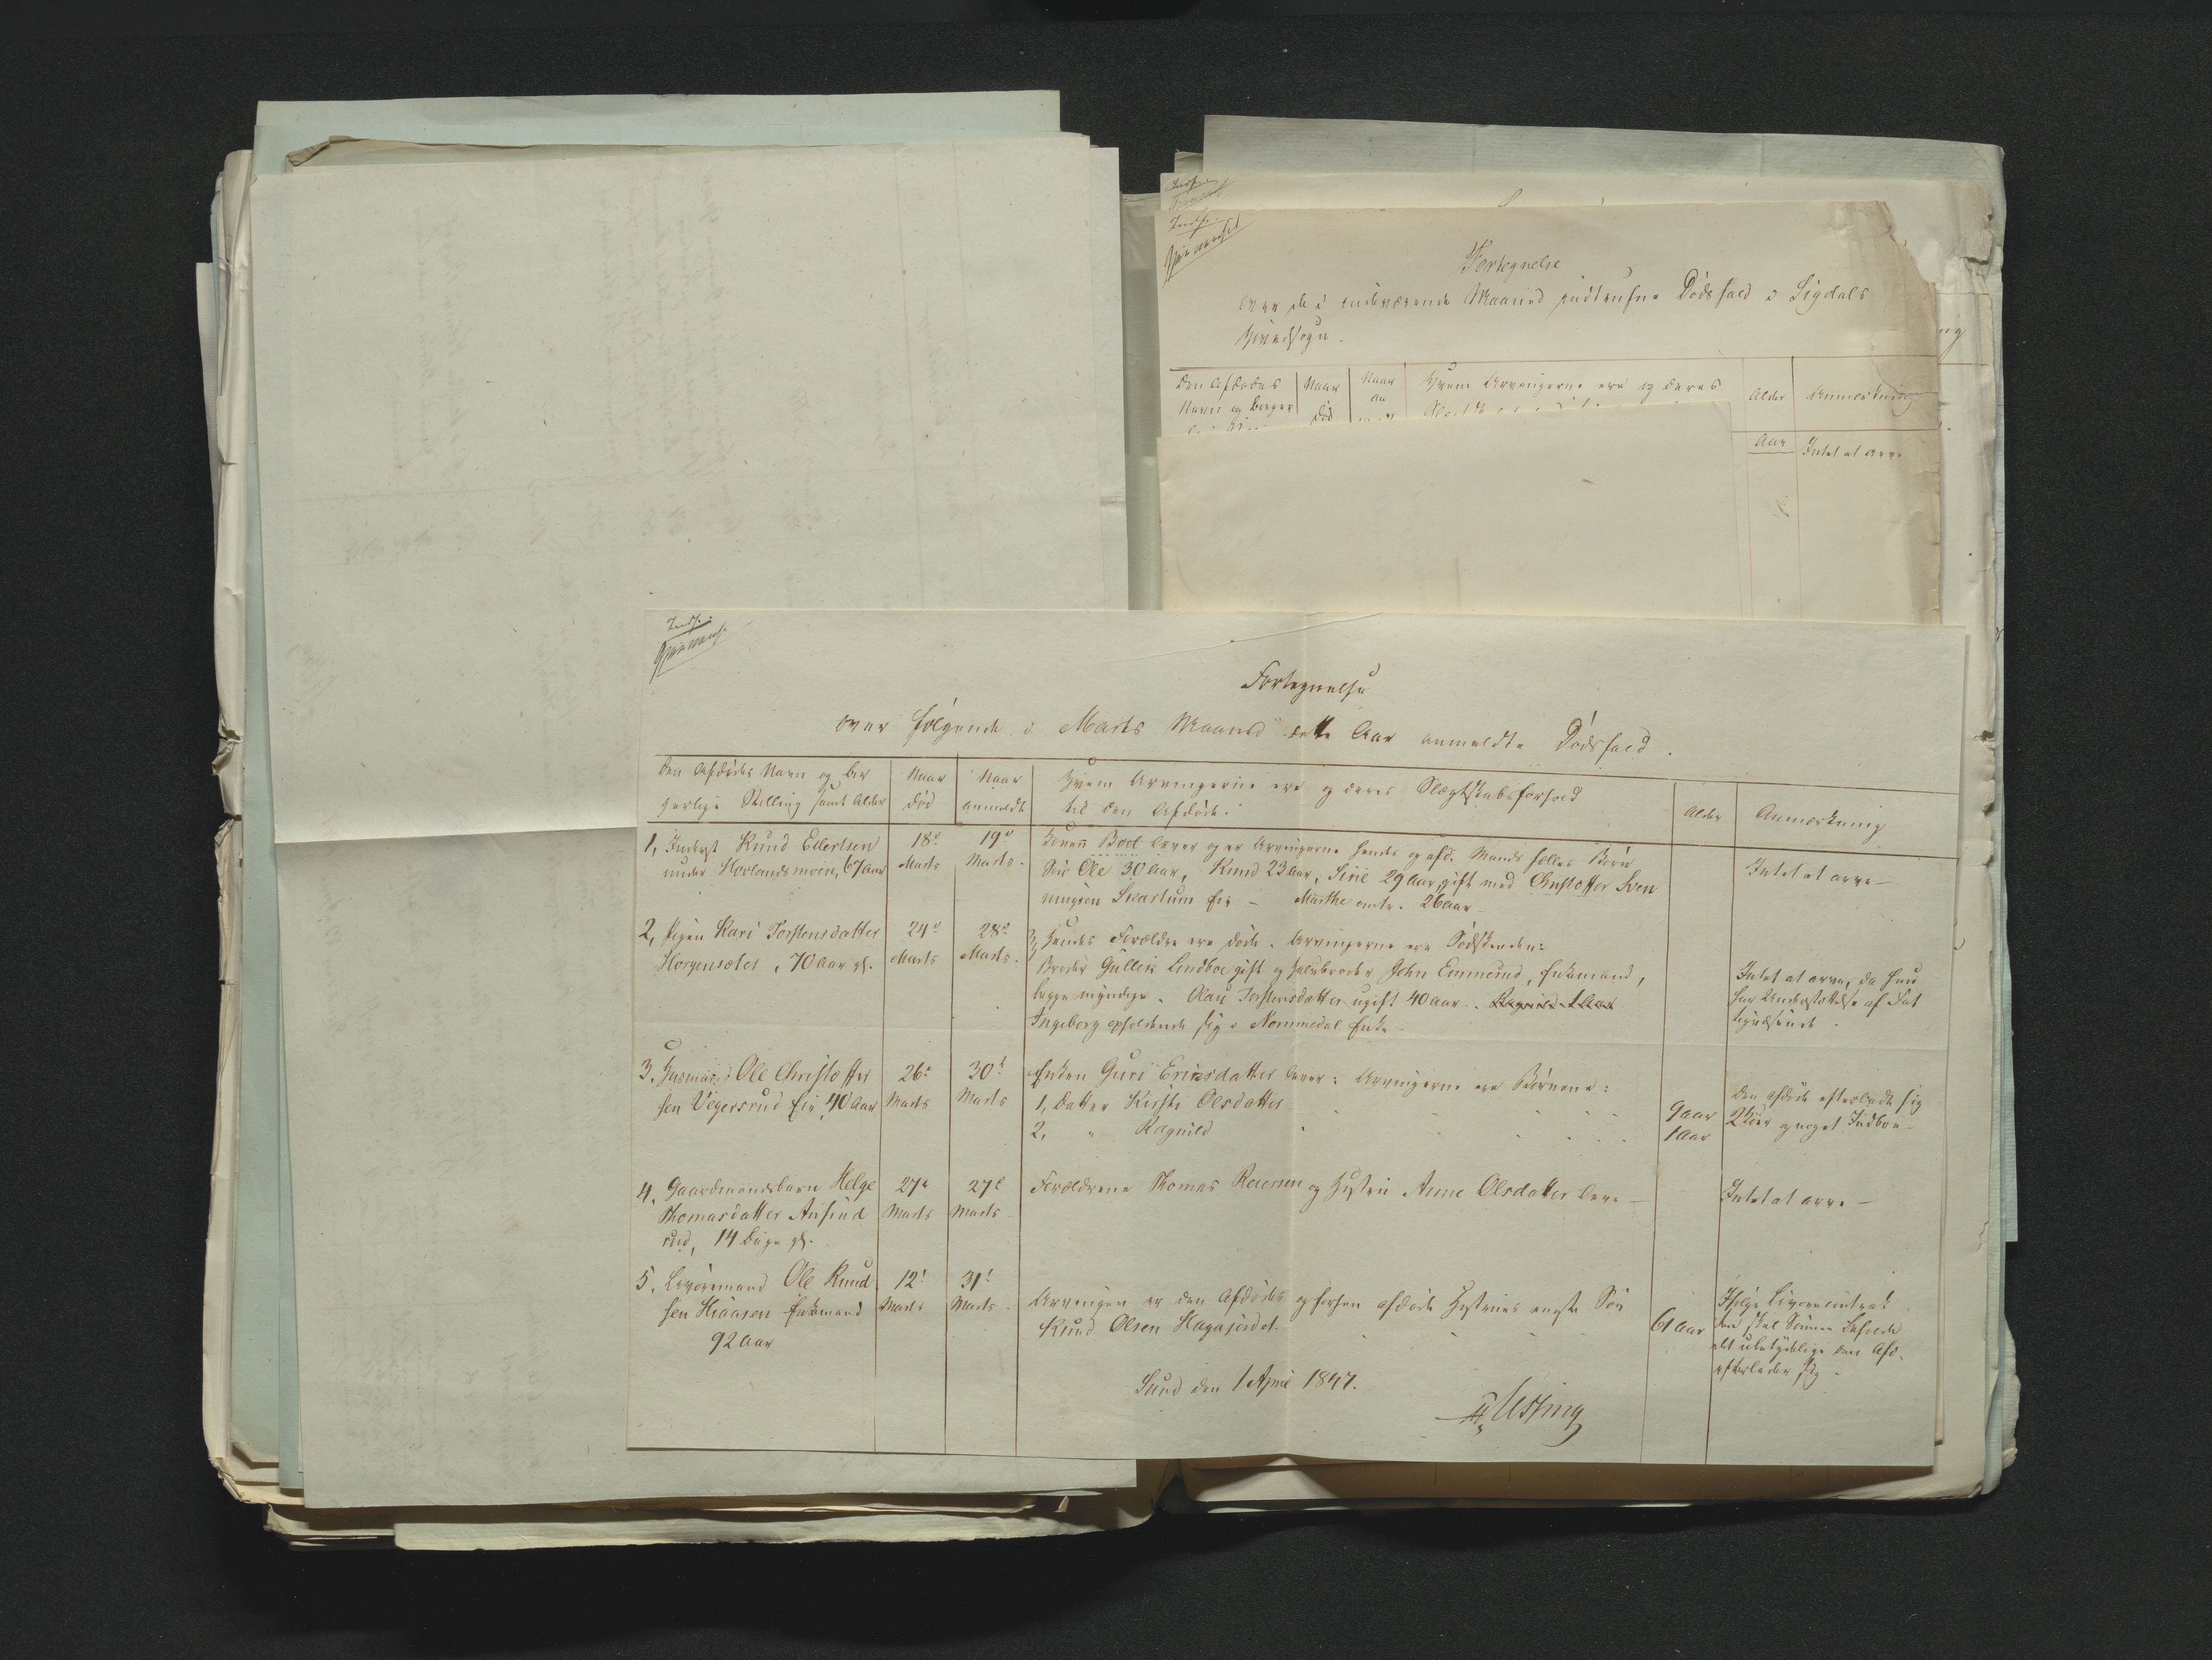 Fortegnelse
over de i indeværende Maaned indtrufne Dødsfald i Sigdals
Hovedsogn.
Den Afdødes
Navn og borger
Naar
død
Naar
an
Hvem Arvingerne ere og deres
Alder
Anmærkning
Aar
Intet at arve
Fortegnelse
over følgende i Marts Maaned dette Aar anmeldte Dødsfald.
Den Afdødes Navn og bor
gerlige Stilling samt Alder
Naar
død
Naar
anmeldt
Hvem Arvingerne ere og deres Slægtskabsforhold
til den Afdøde.
Alder
Anmærkning
1, Inderst Knud Ellertsen
under Hovlandsmoen, 67 Aar
18de
Marts
19de
Marts.
Konen Boel lever og er Arvingerne hendes og afd. Mands fælles Børn
Søn Ole 30 Aar, Knud 23 Aar, Sirie 29 Aar, gift med Christoffer Sven
ningsen Skartum Eie – Marthe 26 Aar
Intet at arve –
2, Pigen Kari Torstensdatter
Horgensæter, 70 Aar gl.
24de
Marts
28de
Marts.
Hendes Forældre ere døde. Arvingerne ere Sødskenden:
Broder Gullik Lindboe gift og Halvbroder John Emmerud, Enkemand,
begge myndige. Olau Torstensdatter ugift 40 Aar. Ragnild 1 Aar
Ingeborg opholdende sig i Nommedal Enke –
Intet at arve, da hun
har Understøttelse af Fat
tigvæsenet.
3. Husmand Ole Christoffer
sen Vegersrud Eie 40 Aar
26de
Marts
30te
Marts
Enken Guri Ericsdatter lever: Arvingerne ere Børnene:
1, Datter Kirsti Olsdatter
2, " Ragnild
9 Aar
1 Aar
Den afdøde efterlod sig
2 Kiør og noget Indboe –
4. Gaardmandsbarn Helge
Thomasdatter Ansind
rud, 14 Dage gl.
27de
Marts
27de
Marts
Forældrene Thomas Reiersen og Hustru Anne Olsdatter leve –
Intet at arve –
5. Livøremand Ole Knud
sen Hiaasen Enkemand
92 Aar
12te
Marts
31te
Marts.
Arvingen er den Afdødes og forhen afdøde Hustrues eneste Søn
Knud Olsen Hagajordet.
61 Aar
Ifølge Livørecontract
skal Sønnen beholde
alt ubetydelige den Afd.
efterlader sig.
Lund den 1 April 1847.
Ussing